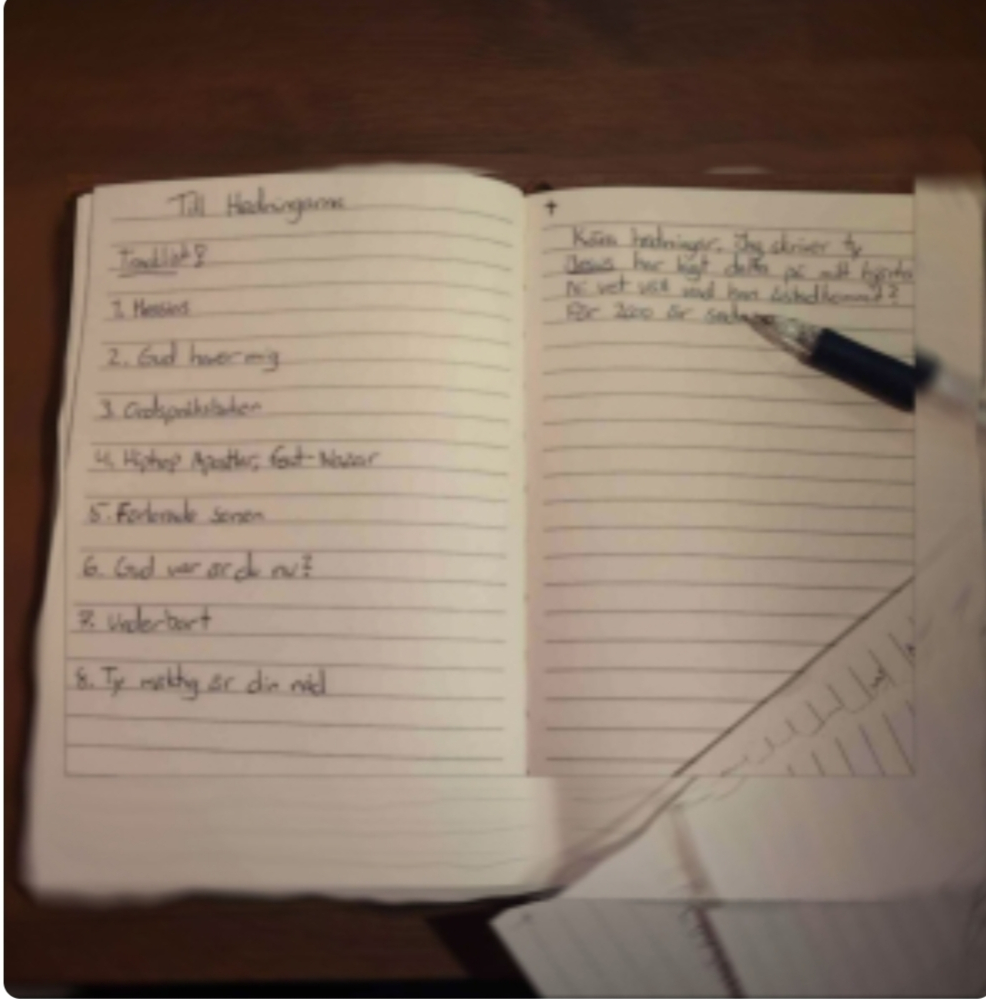 Till Hedningarna
Tracklist:
1. Messias
2. Gud hör mig
3.
4. Hiphop Apostlar,
5. Förlorade sonen
6. Gud var är du nu?
7. Underbart
8. Ty mäktig är din nåd
+
Kära hedningar. Jag skriver ty
Jesus har lagt detta på mitt hjärta
ni vet väl vad han åstadkommit?
För 2000 år sedan